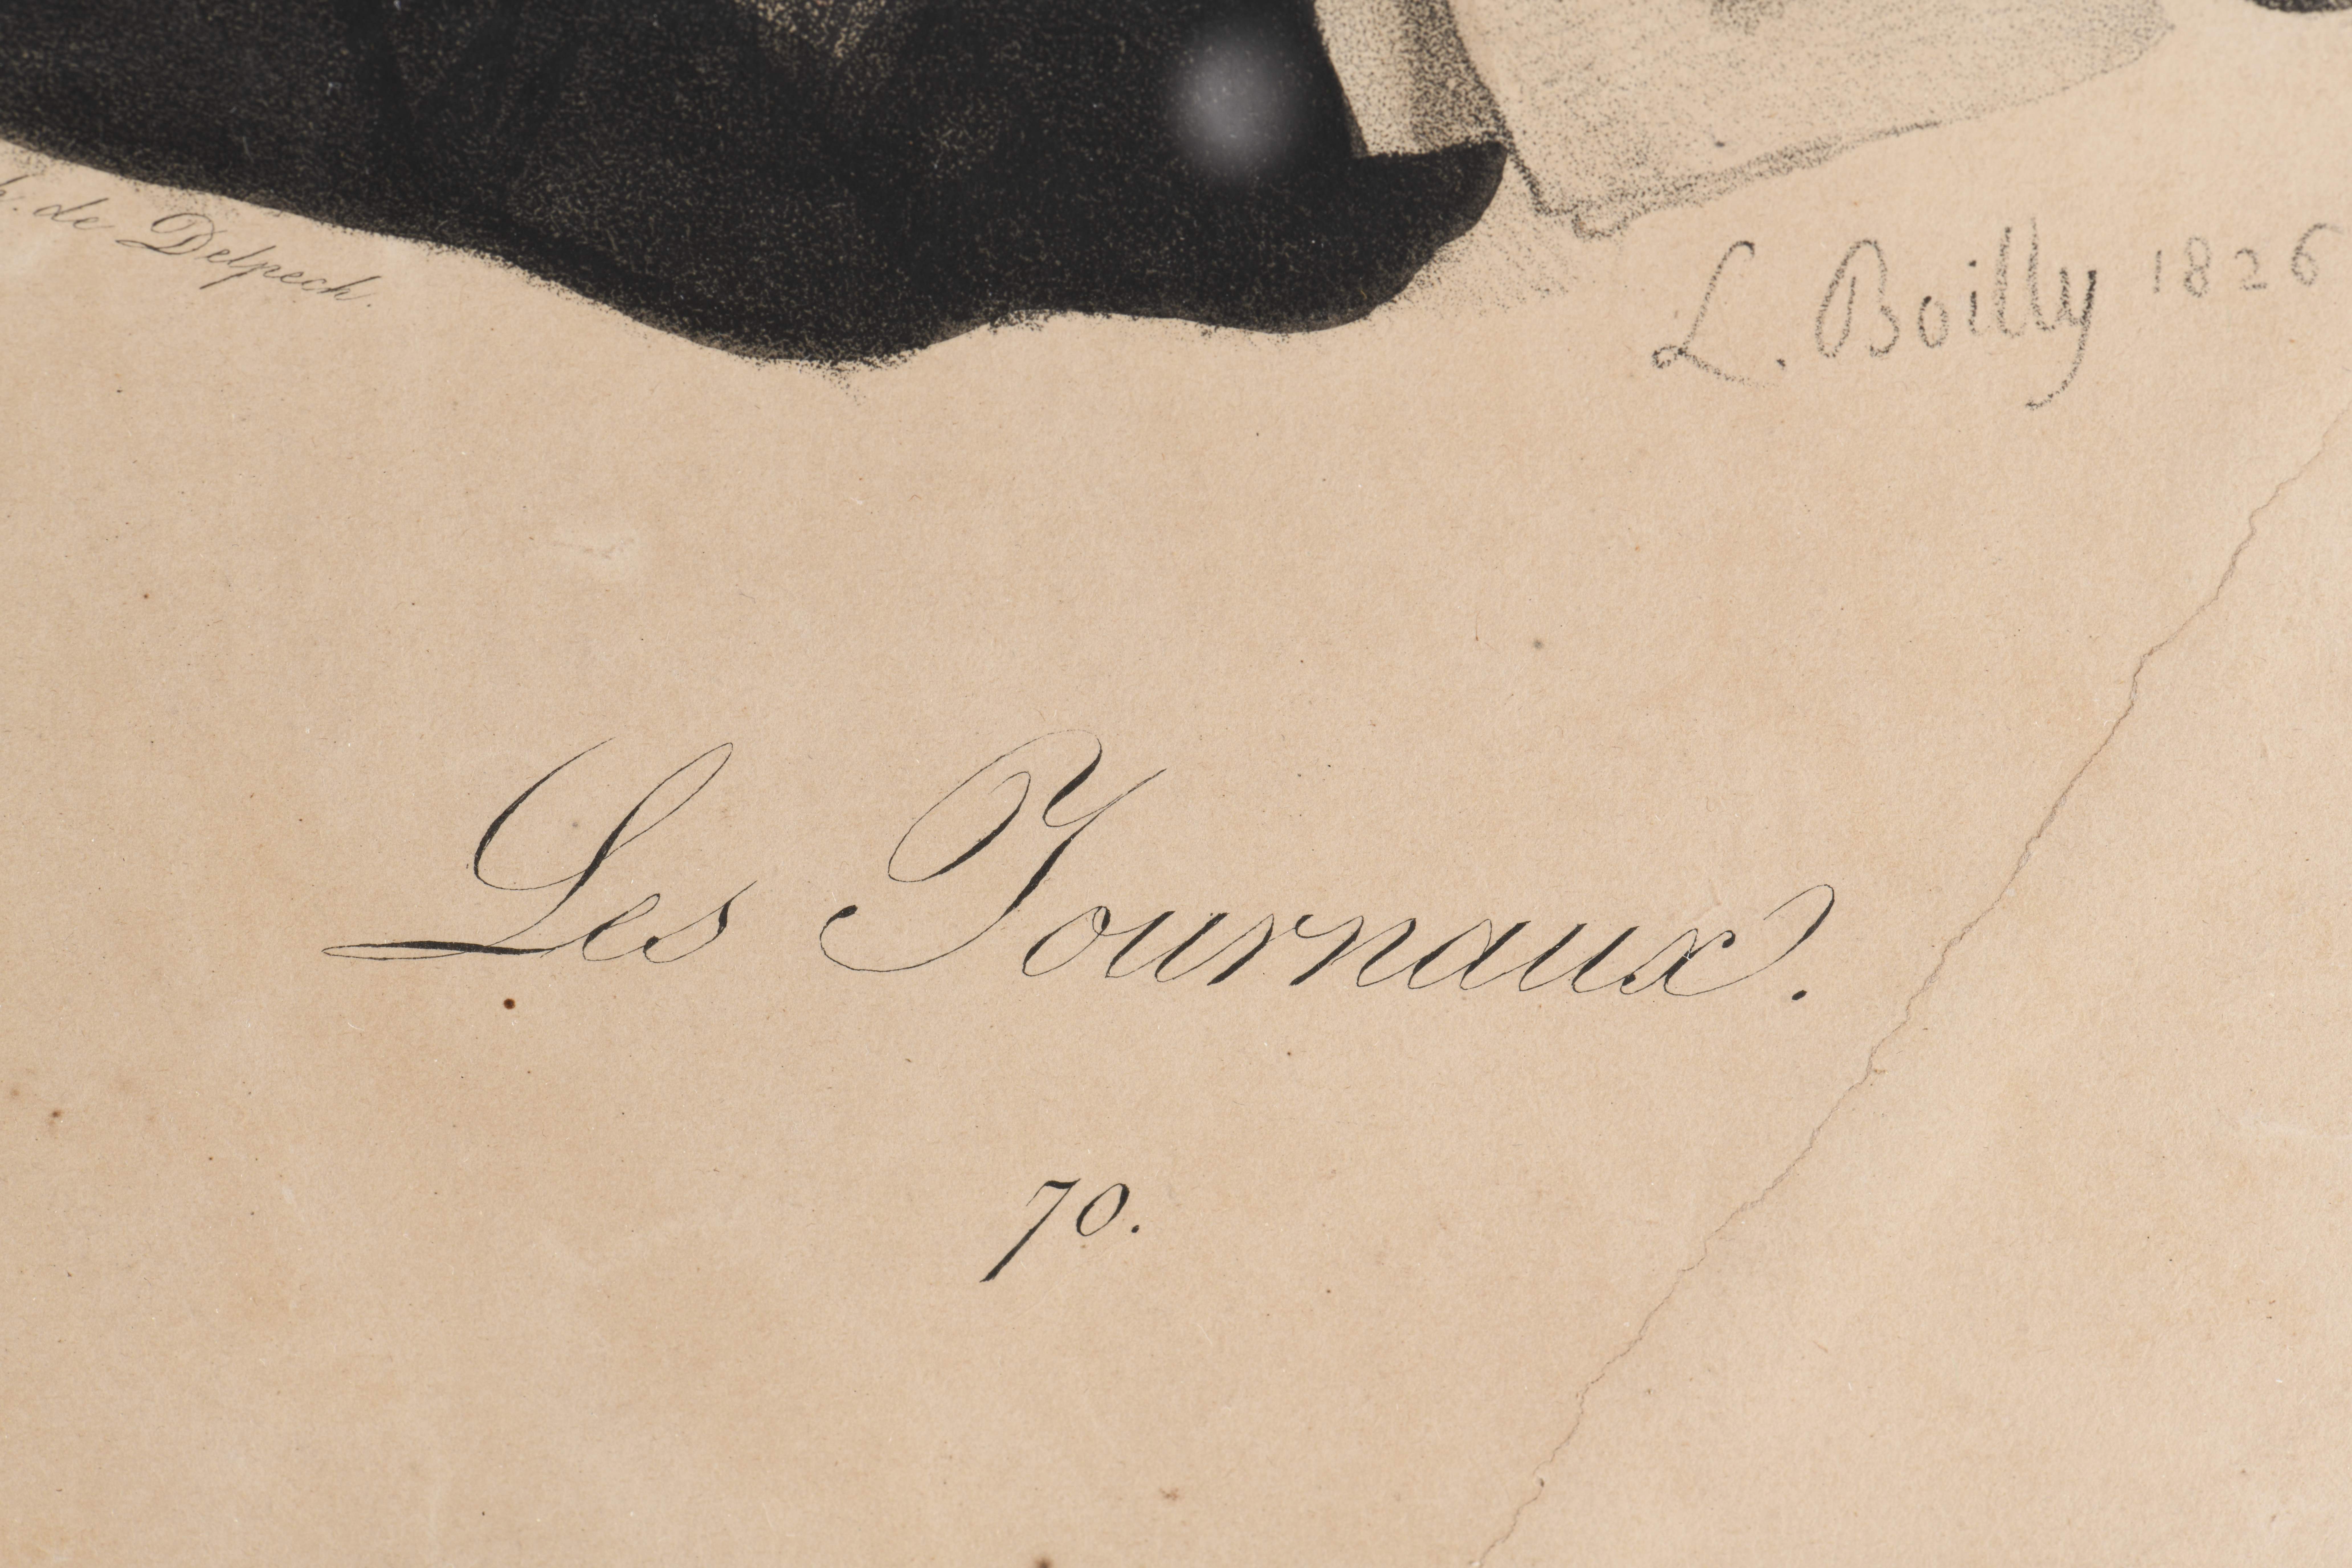 de Delpech.
L. Boilly 1826
Les Journaux.
70.